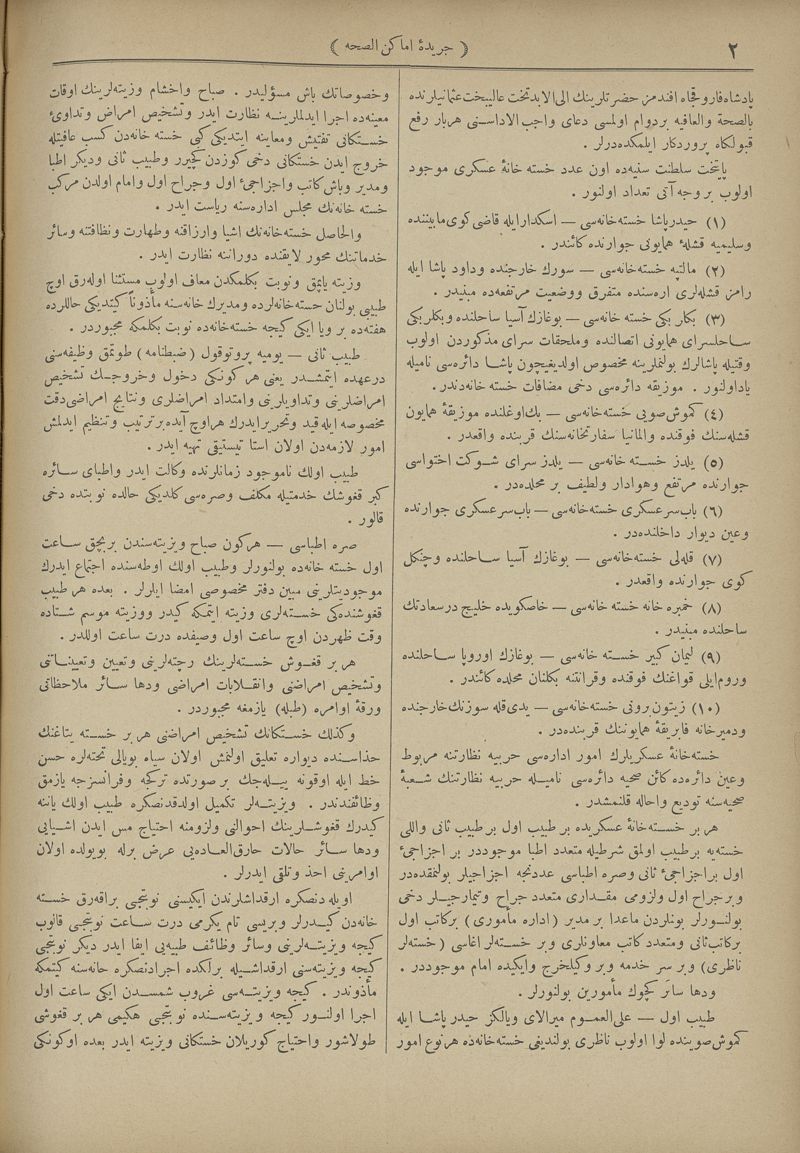 ٢
﴿ جريدهٔ اماكن الصحه ﴾
پادشاه فاروقجاه افندمز حضرتلرينك الى الابد تخت عاليبخت عثمانيلرنده
بالصحة والعافيه بردوام اولمسى دعاى واجب الاداسنى هربار رفع
قبولكاه پروردكار ايلمكده‌درلر .
پايتخت سلطنت سنيه‌ده اون عدد خسته خانهٔ عسكرى موجود
اولوب بر وجه آتى تعداد اولنور .
(١) حيدرپاشا خسته‌خانه‌سى — اسكدار ايله قاضى كوى مابيننده
وسليميه قشلهٔ همايونى جوارنده كائندر .
(٢) مالتپه خسته‌خانه‌سى — سورك خارجنده وداود پاشا ايله
رامز قشله‌لرى اره‌سنده متفرق ووضعيت مرتفعه‌ده مبنيدر .
(٣) بكلر بكى خسته‌خانه‌سى — بوغازك آسيا ساحلنده وبكلربكى
ساحلسراى همايونى اتصالنده وملحقات سراى مذكوردن اولوب
وقتيله پاشالرك بولنملرينه مخصوص اولديغيچون پاشا دائره‌سى ناميله
ياداولنور . موزيقه دائره‌سى دخى مضافات خسته خانه‌دندر .
(٤) كموش‌صويى خسته‌خانه‌سى — بك‌اوغلنده موزيقهٔ همايون
قشله‌سنك فوقنده والمانيا سفارتخانه‌سنك قربنده واقعدر .
(٥) يلدز خسته خانه‌سى — يلدز سراى شوكت احتواسى
جوارنده مرتفع وهوادار ولطيف بر محلده‌در .
(٦) باب‌سرعسكرى خسته‌خانه‌سى — باب‌سرعسكرى جوارنده
وعين ديوار داخلنده‌در .
(٧) قله‌لى خسته‌خانه‌سى — بوغازك آسيا ساحلنده وچنكل
كوى جوارنده واقعدر .
(٨) خمبره خانه خسته خانه‌سى — خاصكويده خليج درسعادتك
ساحلنده مبنيدر .
(٩) ليمان كبير خسته خانه‌سى — بوغازك اوروپا ساحلنده
وروم‌ايلى قواغنك فوقنده وقرانتنه بكلنان محلده كائندر .
(١٠) زيتون‌برونى خسته‌خانه‌سى — يدى‌قله سورنك خارجنده
ودميرخانه فابريقهٔ همايوننك قربنده‌در .
خسته‌خانهٔ عسكريلرك امور اداره‌سى حربيه نظارتنه مربوط
وعين دائره‌ده كائن صحيه دائره‌سى ناميله حربيه نظارتنك شعبهٔ
صحيه‌سنه توديع واحاله قلنمشدر .
هر بر خسته‌خانهٔ عسكريده بر طبيب اول بر طبيب ثانى واللى
خسته‌يه بر طبيب اولمق شرطيله متعدد اطبا موجوددر بر اجزاجىٔ
اول براجزاجىٔ ثانى وصره اطباسى عددنجه اجزاجيلر بولنمقده‌در
وبرجراح اول ولزومى مقدارى متعدد جراح وتيمارجيلر دخى
بولنورلر بونلردن ماعدا بر مدير (اداره مأمورى) بركاتب اول
بركاتب‌ثانى ومتعدد كاتب معاونلرى وبر خسته‌لر اغاسى (خسته‌لر
ناظرى) وبر سر خدمه وبر وكيلخرج وايكيده امام موجوددر .
ودها سائر كچوك مأمورين بولنورلر .
طبيب اول — على‌العموم ميرالاى ويالكز حيدر پاشا ايله
كموش‌صوينده لوا اولوب ناظرى بولنديغى خسته‌خانه‌ده هرنوع امور
وخصوصاتك باش مسؤليدر . صباح واخشام وزيته‌لرينك اوقات
معينه‌ده اجرا ايدلملرينه نظارت ايدر وتشخيص امراض وتداوئ
خستكانى تفتيش ومعاينه ايتديكى كبى خسته خانه‌دن كسب عافيتله
خروج ايدن خستكانى دخى كوزدن كچيرر وطبيب ثانى وديكر اطبا
ومدير وباش‌كاتب واجزاجىٔ اول وجراح اول وامام اولدن مركب
خسته خانه‌نك مجلس اداره‌سنه رياست ايدر .
والحاصل خسته‌خانه‌نك اشيا وارزاقنه وطهارت ونظافتنه وسائر
خدماتنك محور لايقنده دوراننه نظارت ايدر .
وزيته ياپمق ونوبت بكلمكدن معاف اولوب مستثنا اوله‌رق اوچ
طبيبى بولنان خسته‌خانه‌لرده ومديرك خانه‌سنه مأذوناً كيتديكى حاللرده
هفته‌ده بر ويا ايكى كيجه خسته‌خانه‌ده نوبت بكلمكه مجبوردر .
طبيب ثانى — يوميه پروتوقول (ضبطنامه) طوتمق وظيفه‌سنى
درعهده ايتمشدر يعنى هر كونكى دخول وخروجك تشخيص
امراضلرينى وتداويلرينى وامتداد امراضلرى ونتايج امراضى‌دقت
مخصوصه ايله قيد وتحريرايدرك هراوچ آيده برترتيب وتنظيم ايدلمش
امور لازمه‌دن اولان استاتيستيقى تهيه ايدر .
طبيب اولك ناموجود زمانلرنده وكالت ايدر واطباى سائره
كبر قغوشك خدمتيله مكلف وصره‌سى كلديكى حالده نوبتده دخى
قالور .
صره اطباسى — هركون صباح ويزيته‌سندن بربچق ساعت
اول خسته خانه‌ده بولنورلر وطبيب اولك اوطه‌سنده اجتماع ايدرك
موجوديتلرينى مبين دفتر مخصوصى امضا ايلرلر . بعده هر طبيب
قغوشنده‌كى خسته‌لرى وزيته ايتمكه كيدر ووزيته موسم شتاده
وقت ظهردن اوچ ساعت اول وصيفده درت ساعت اوللدر .
هر بر قغوش خسته‌لرينك رچته‌لرينى وتعيين وتعييناتى
وتشخيص امراضنى وانقلابات امراضى ودها سائر ملاحظاتى
ورقهٔ اوامره (طبله) يازمغه مجبوردر .
وكذلك خستكانك تشخيص امراضنى هر بر خسته يتاغنك
حذاسنده ديواره تعليق اولنمش اولان سياه بويالى تخته‌لره حسن
خط ايله اوقونه بيله‌جك بر صورتده تركجه وفرانسزجه يازمق
وظائفنددر . ويزيته‌لر تكميل اولدقدنصكره طبيب اولك ياننه
كيدرك قغوشلرينك احوالنى ولزومنه احتياج مس ايدن اشيايى
ودها سائر حالات خارق‌العاده‌يى عرض برله بويولده اولان
اوامرينى اخذ وتلقى ايدرلر .
اويله دنصكره ارقداشلرندن ايكيسنى نوبتجى براقه‌رق خسته
خانه‌دن كيدرلر وبريسى تام يكرمى درت ساعت نوبتجى قالوب
كيجه ويزيته‌لرينى وسائر وظائف طبيه‌يى ايفا ايدر ديكر نوبتجى
كيجه ويزيته‌سنى ارقداشيله برلكده اجرادنصكره خانه‌سنه كيتمكه
مأذوندر . كيجه ويزيته‌سى غروب شمسدن ايكى ساعت اول
اجرا اولنور كيجه ويزيته‌سنده نوبتجى حكيمى هر بر قغوشى
طولاشور واحتياج كوريلان خستكانى ويزيته ايدر بعده اوكونكى